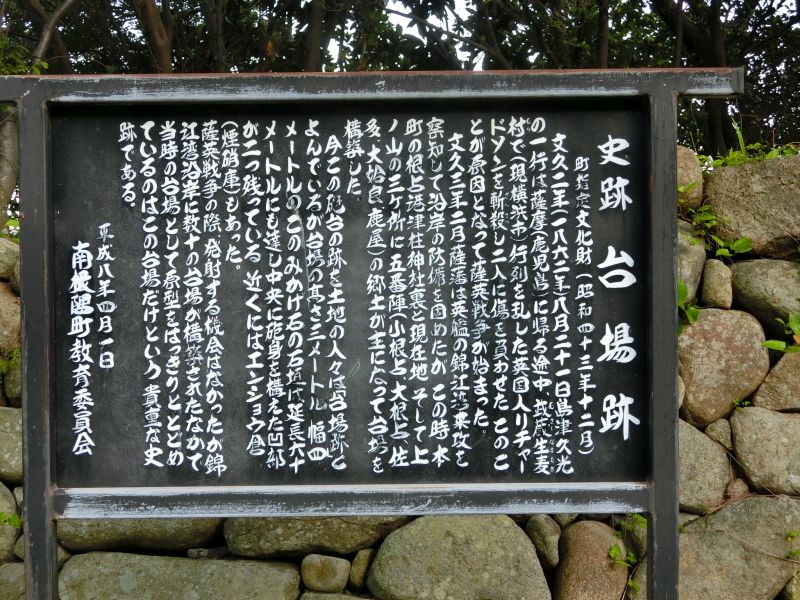 史跡 台場跡
町指定文化財(昭和四十三年十二月)
文久二年(一八六二年)八月二十一日島津久光
の一行は薩摩(鹿児島)に帰る途中武蔵生麦
村で(現横浜市)行列を乱した英国人リチャー
ドソンを斬殺し二人に傷を負わせた このこ
とが原因となって薩英戦争が始まった。
文久三年二月薩藩は英艦の錦江湾来攻を
察知して沿岸の防備を固めたが この時 本
町の根占港津柱神社裏と現在地 そして上
ノ山の三ケ所に五番陣(小根占 大根占 佐
多 大姶良 鹿屋)の郷士が主になって台場を
構築した。
今この砲台の跡を土地の人々は台場跡と
よんでいるが台場の高さ三メートル 幅四
メートルのこのみかげ石の石垣は延長六十
メートルにも達し中央に砲身を構えた凹部
が二つ残っている 近くにはエンショウ倉
(煙硝庫)もあった。
薩英戦争の際 発射する機会はなかったが錦
江湾沿岸に数十の台場が構築されたなかで
当時の台場として原型をはっきりととどめ
ているのはこの台場だけという 貴重な史
跡である。
平成八年四月一日
南大隅町教育委員会